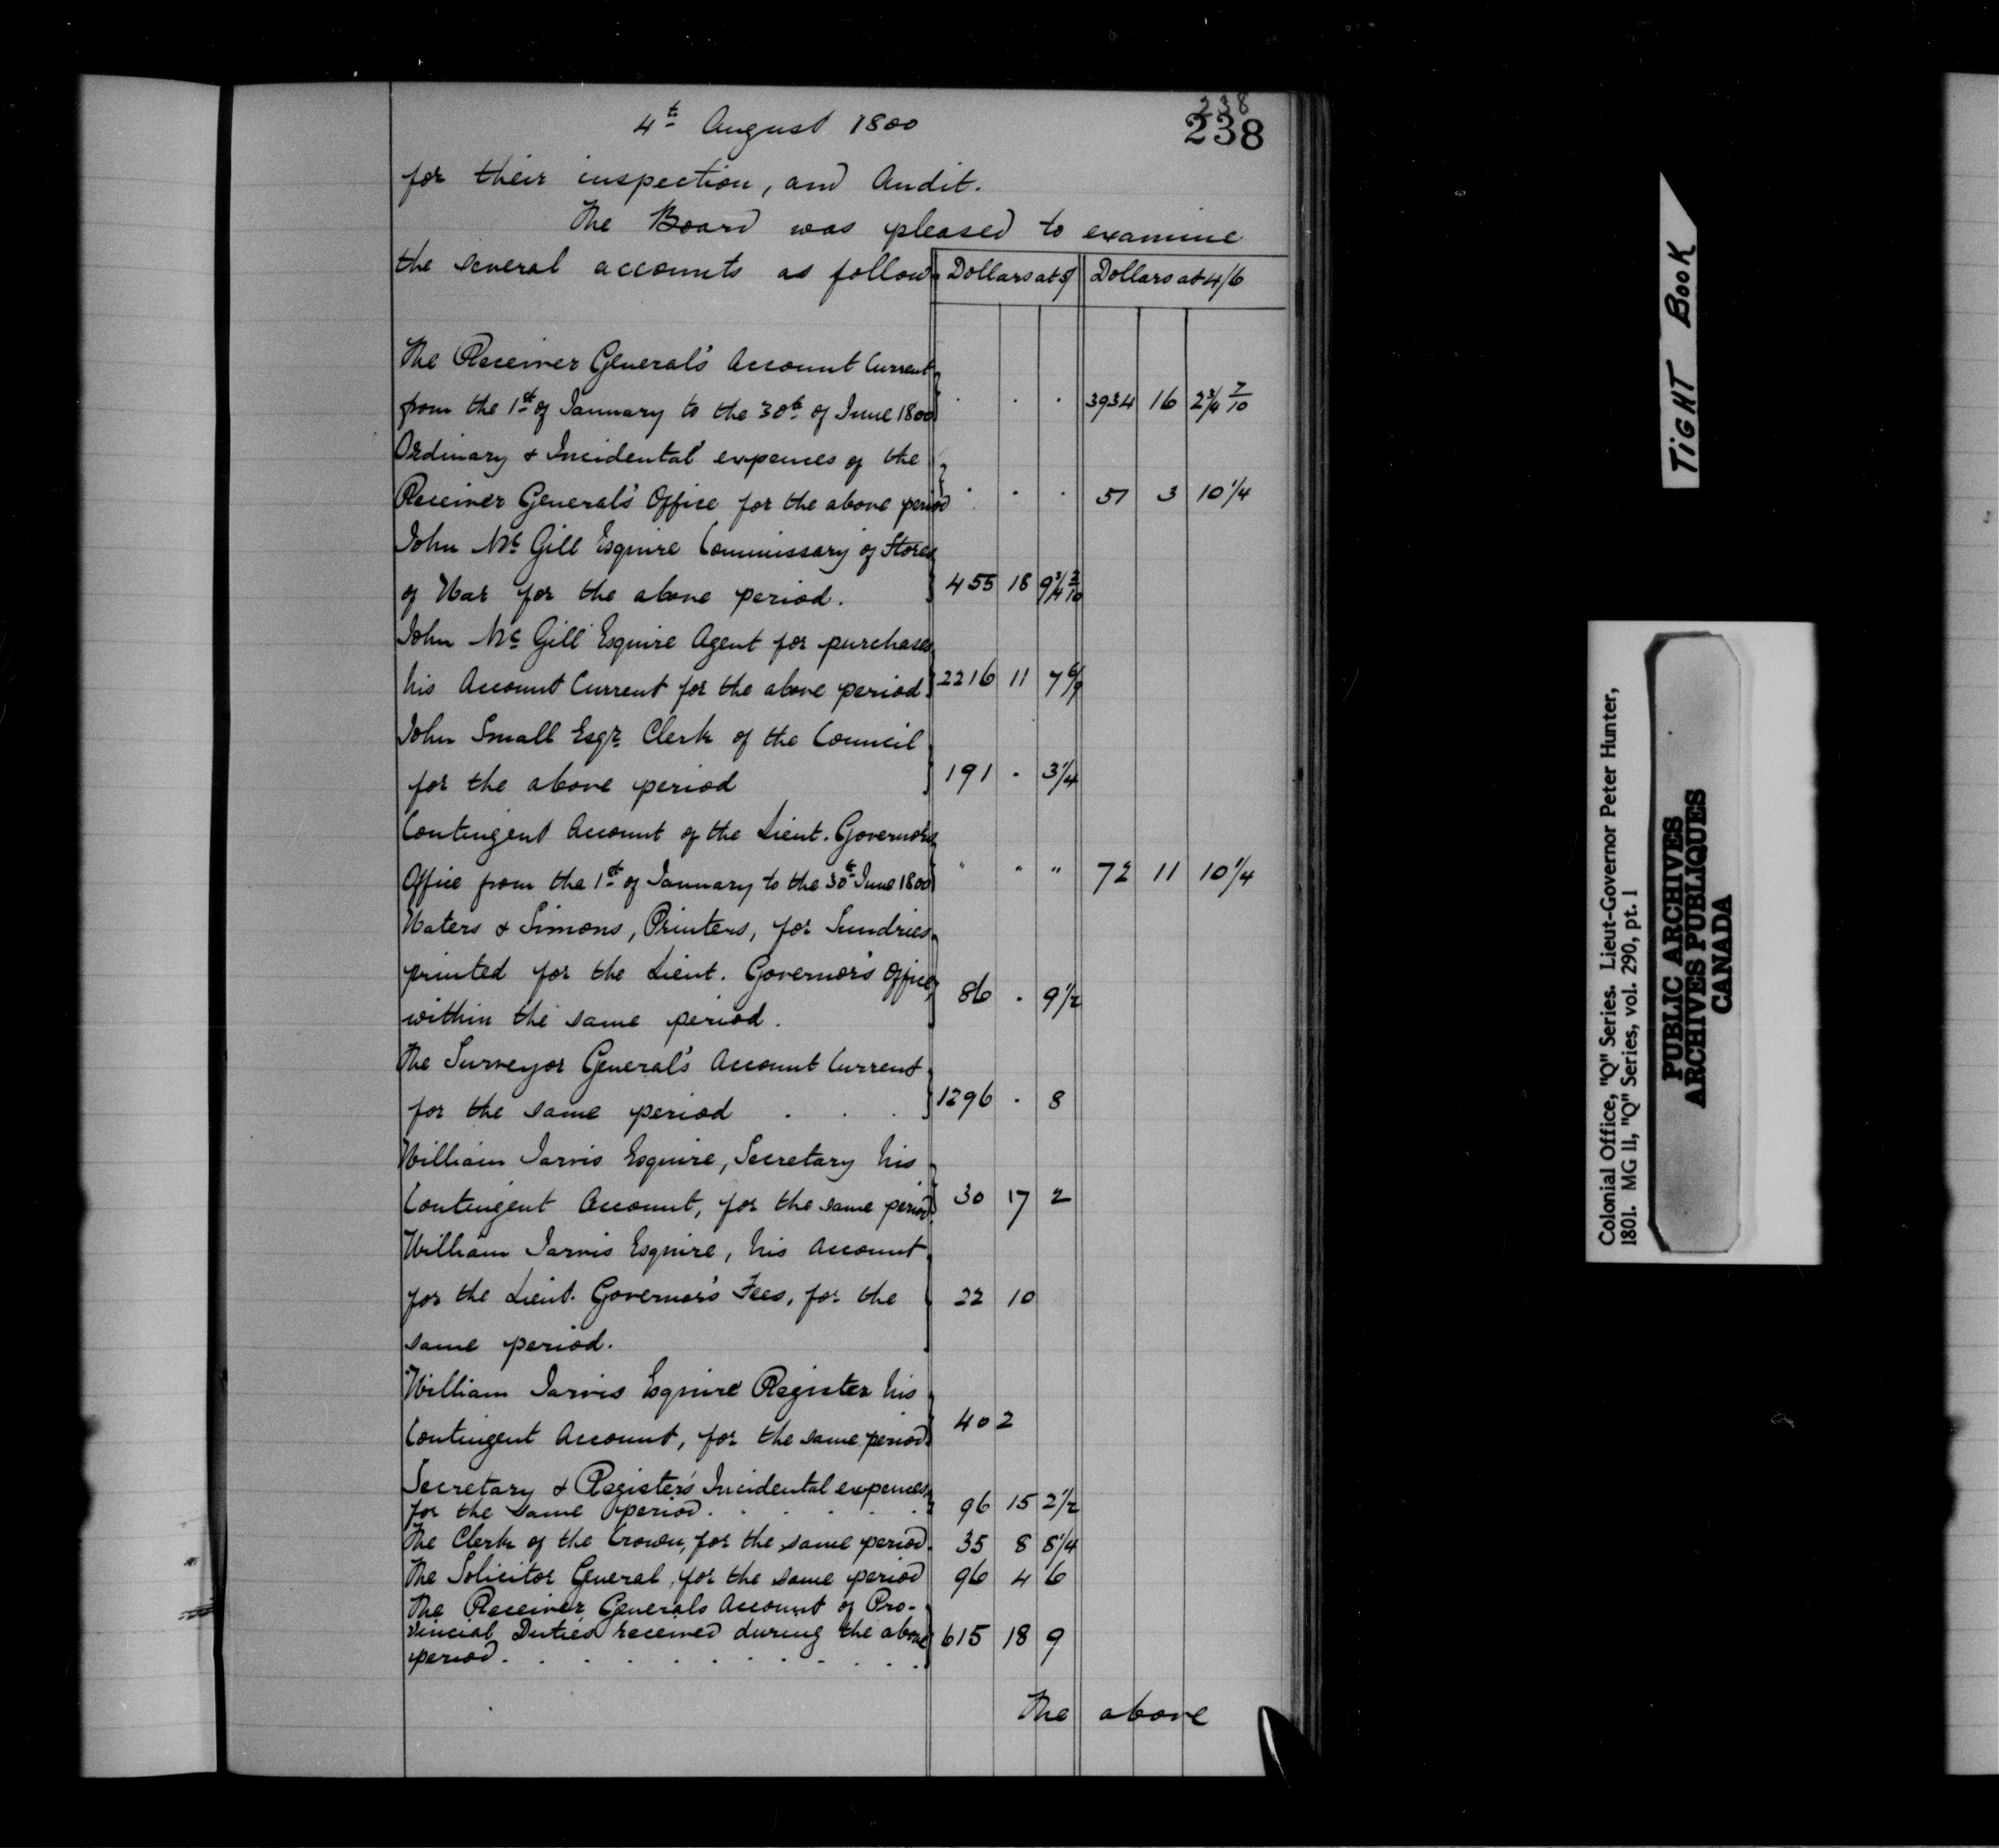 238
4th August 1800 238
for their inspection, and Audit.
The Board was pleased to examine
the several accounts as follow Dollars at 5/ Dollars at 4/6
The Receiver General's Account Current
from the 1st of January to the 30th of June 1800 . . . 3934 16 2 3/4 7/10
Ordinary & Incidental expences of the
Receiver General's Office for the above period . . . 51 3 10 1/4
John Mc Gill Esquire Commissary of Stores
of War for the above period. 455 18 9 3/4 2/10
John Mc Gill Esquire Agent for purchases
his Account Current for the above period 2216 11 7 6/9
John Small Esqr. Clerk of the Council
for the above period 191 . 3 1/4
Contingent Account of the Lieut. Governor's
Office from the 1st of January to the 30th June 1800 " " " 72 11 10 1/4
Waters & Simons, Printers, for Sundries
printed for the Lieut. Governor's Office
within the same period. 86 . 9 1/2
The Surveyor General's Account Current
for the same period . . . 1296 . 8
William Jarvis Esquire, Secretary his
Contingent Account, for the same period. 30 17 2
William Jarvis Esquire, his Account
for the Lieut. Governor's Fees, for the 22 10
same period.
William Jarvis Esquire Register his
Contingent Account, for the same period. 40 2
Secretary & Register's Incidental expences
for the same period. . . . . 96 15 2 1/2
The Clerk of the Crown, for the same period. 35 8 8 1/4
The Solicitor General, for the same period 96 4 6
The Receiver Generals Account of Pro-
vincial Duties received during the above 615 18 9
period. . . . . . . . . .
The above
TIGHT BOOK
Colonial Office, "Q" Series. Lieut-Governor Peter Hunter,
1801. MG 11, "Q" Series, vol. 290, pt. 1
PUBLIC ARCHIVES
ARCHIVES PUBLIQUES
CANADA